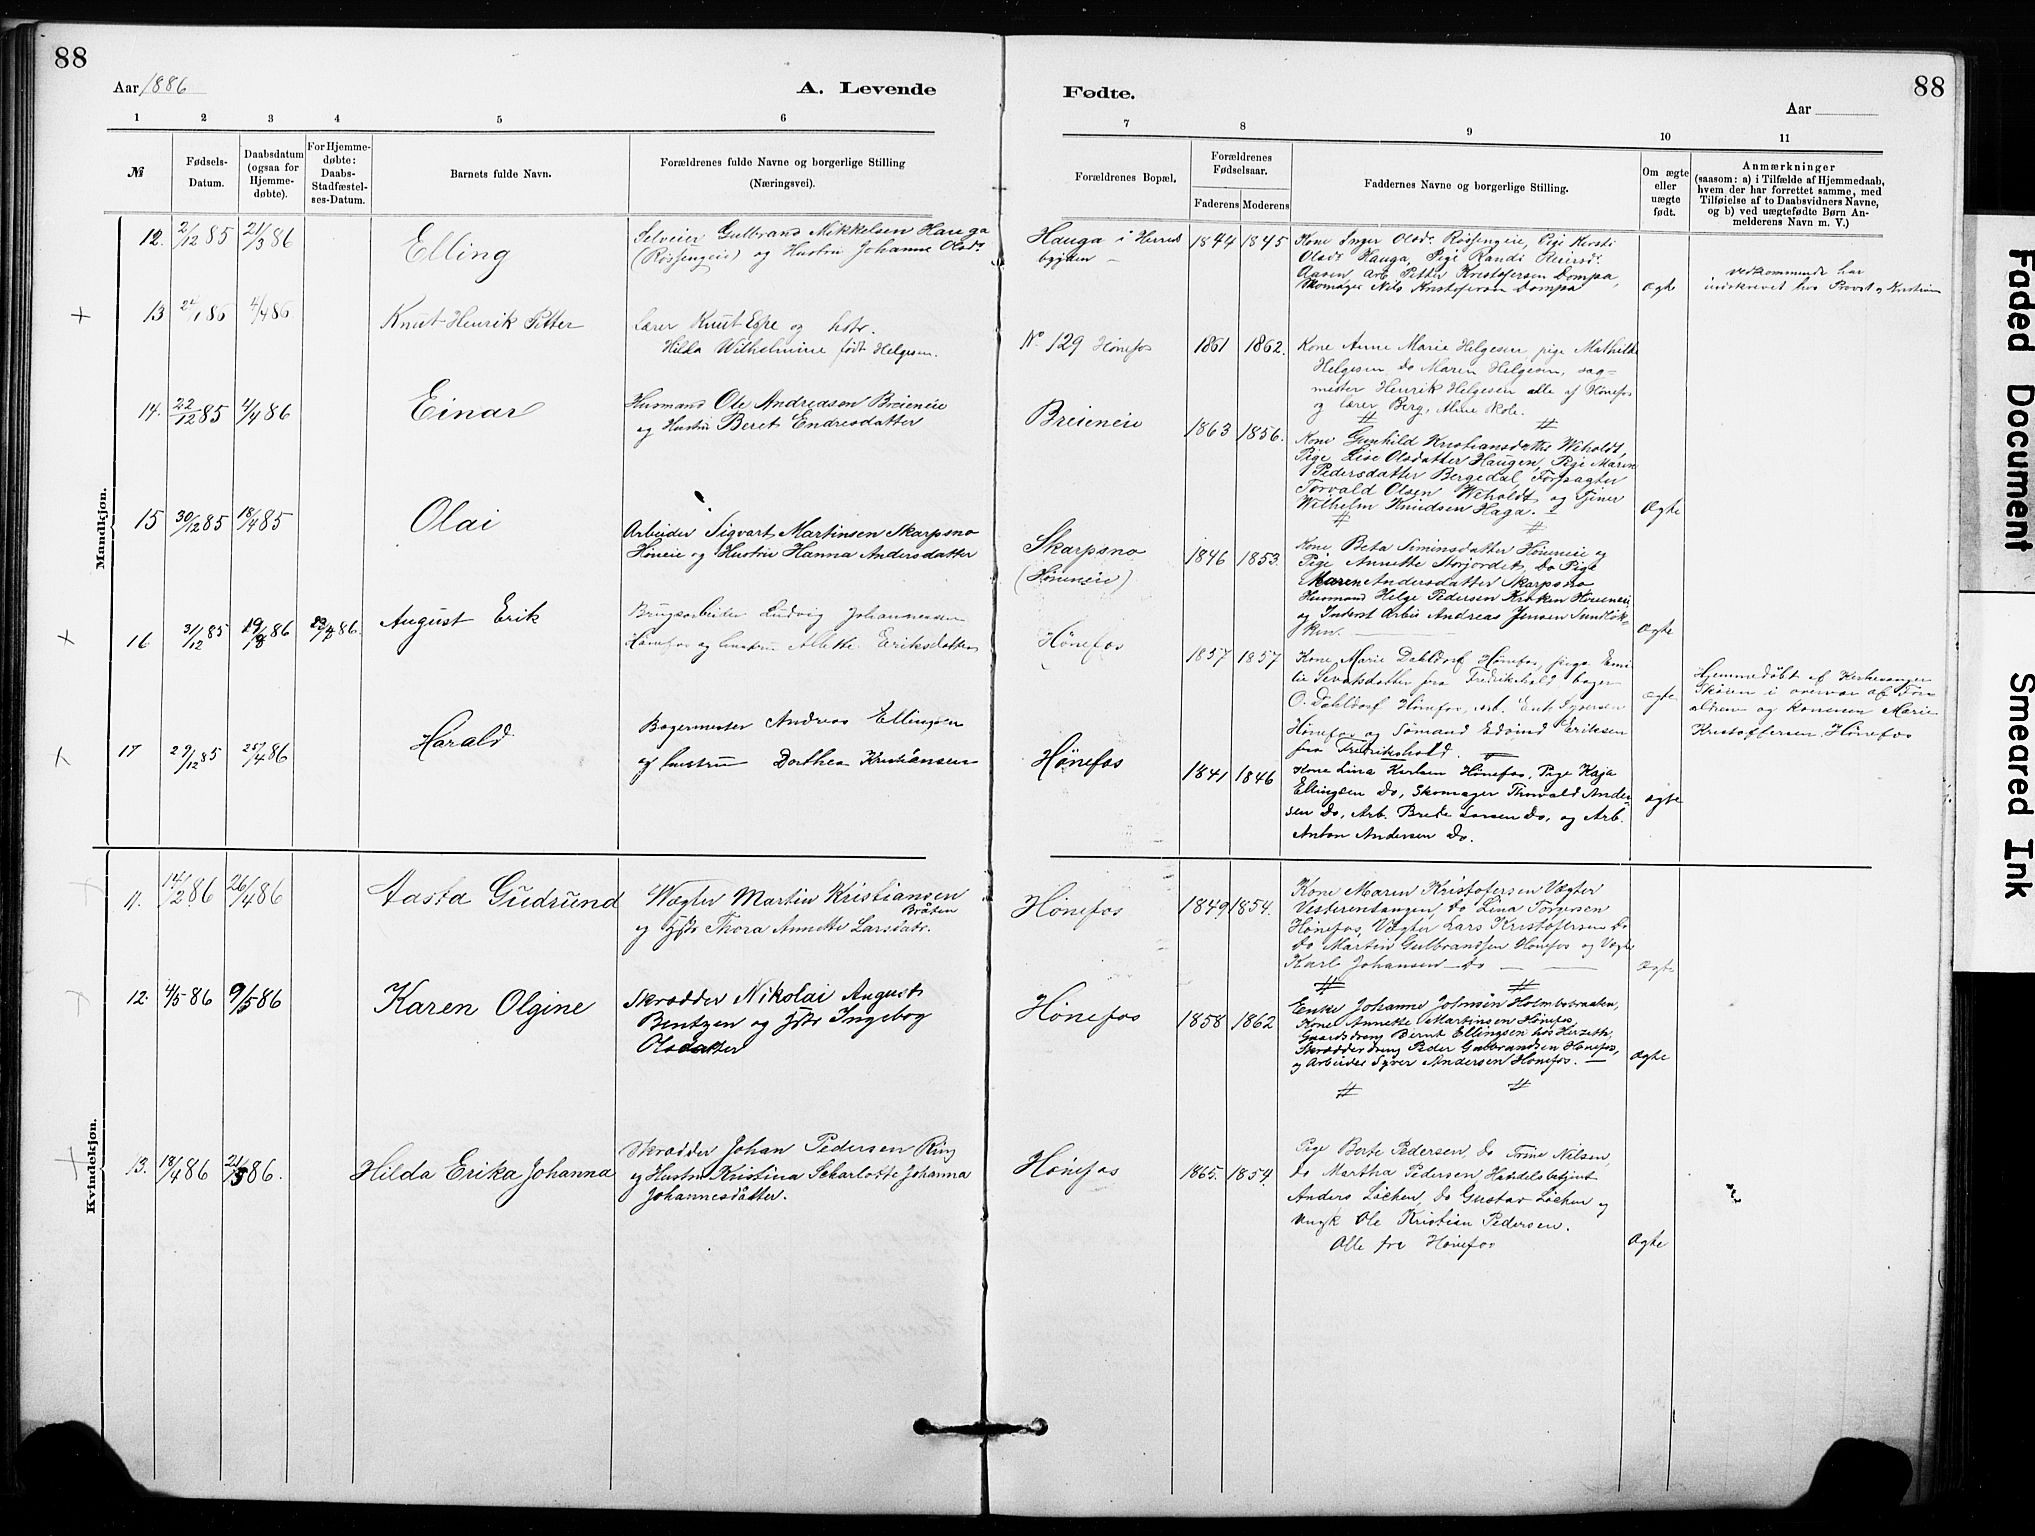 88
Aar 1886
A. Levende
1 2 3 4 5 6
№
Fødsels-
Datum.
Daabsdatum
(ogsaa for
Hjemme-
døbte).
For Hjemme-
døbte:
Daabs-
Stadfæstel-
ses-Datum.
Barnets fulde Navn.
Forældrenes fulde Navne og borgerlige Stilling
(Næringsvei).
Mandkjøn.
12. 2/12 85 21/3 86 Elling
Selveier Gulbrand Mikkelsen Hauga
(Røssengeie) og Hustru Johanne Olsdr
13 24/1 86 4/4 86 Knut Henrik Petter
Lærer Knut Espe og hstr.
Hilda Wilhelmine født Helgesen.
14. 22/12 85 4/4 86 Einar
Husmand Ole Andreasen Breieneie
og Hustru Beret Endresdatter
15 30/12 85 18/4 85 Olai
Arbeider Sigvart Martinsen Skarpsno
Høneie og Hustru Hanna Andersdatter
16 31/12 85 August Erik
Brugsarbeider Ludvig Johannessen
Hønefos og hustru Albette Eriksdatter
17 29/12 85 25/4 86 Harald
Bagermester Andreas Ellingsen
og hustru Dorthea Kristiansen
Kvindekjøn.
11. 14/2 86 26/4 86 Aasta Gudrund
Vægter Martin Kristiansen
Bråten
og Hstr Thora Annette Larsdatr.
12. 4/5 86 9/5 86 Karen Olgine
Skrædder Nikolai August
Bentzen og Hstr Ingebog
Olsdatter
13. 18/4 86 21/5 86. Hilda Erika Johanna
Skrædder Johan Pedersen Ring
og Hustru Kristina Scharlotte Johanna
Johannesdatter.
88
Fødte.
Aar
7 8 9 10 11
Forældrenes Bopæl.
Forældrenes
Fødselsaar.
Faderens Moderens
Faddernes Navne og borgerlige Stilling.
Om ægte
eller
uægte
født.
Anmærkninger
(saasom: a) i Tilfælde af Hjemmedaab,
hvem der har forrettet samme, med
Tilføielse af to Daabsvidners Navne,
og b) ved uægtefødte Børn An-
melderens Navn m. V.)
Hauga i Herreds
bygden
1844 1845
Kone Inger Olsdr. Røssengeie, Pige Kersti
Olsdr Hauga, Pige Randi
Aasen, Arb. Petter Kristofersen Dompa,
Skomager Nils Kristofersen Dompa
Ægte
vedkommende har
indskrevet hos Provst
No. 129 Hønefos 1861 1862.
Kone Anne Marie Helgesen, pige Mathilde
Helgesen, do Maren Helgesen, sag-
mester Henrik Helgesen alle af Hønefos
og lærer Berg,
Breieneie 1863 1856.
Kone Gunhild Kristiansdatter Weholdt,
Pige Lise Olsdatter Haugen, Pige Maren
Pedersdatter Bergedal, Forpagter
Torvald Olsen Weholdt og Tjener
Wilhelm Knudsen Haga.
Ægte
Skarpsno
(Høneneie)
1846 1853.
Kone Beta Siminsdatter Høneneie og
Pige Annette Storjordet, Do Pige
Maren Andersdatter Skarpsno
Husmand Helge Pedersen Kroken Høneneie
og Inderst Arbr Andreas Jensen
Ægte
Hønefos 1857 1857
Kone Marie Dahldorf Hønefos, pige Emi
lie fra Fredrikshald, bager
O. Dahldorf Hønefos, arb. Erik Syversen
Hønefos og Sømand Edvind Eriksen
fra Fredrikshald.
ægte
Hjemmedøbt af Kirkesanger
Skøien i overvær af For
ældrene og konerne Marie
Kristoffersen, Hønefos
Hønefos 1841 1846
Kone Lina Karlsen Hønefos, Pige Kaja
Ellingsen Do, Skomager Thorvald Ander-
sen Do, Arb. Brede Larsen Do, og Arb.
Anton Andersen Do.
ægte
Hønefos 1849 1854.
Kone Maren Kristofersen Vægter
Vesterentangen, Do Lina Torgersen
Hønefos, Vægter Lars Kristofersen Do
Do Martin Gulbrandsen Hønefos og Vægter
Karl Johansen Do
Ægte
Hønefos 1858 1862
Enke Johanne Johnsen Holmbobraaten,
Kone Annette Martinsen Hønefos,
Gaardsdreng Bernt Ellingsen hos Herzeth,
Skrædderdreng Peder Gulbrandsen Hønefos,
og Arbeider Syver Andersen Hønefos.
Ægte
Hønefos 1865. 1854.
Pige Berte Pedersen, Do Trine Nilsen,
Do Martha Pedersen, Handelsbetjent
Anders Løchen, Do Gustav Løchen og
Ungk Ole Kristian Pedersen.
Alle fra Hønefos
Ægte
Faded Document
Smeared Ink